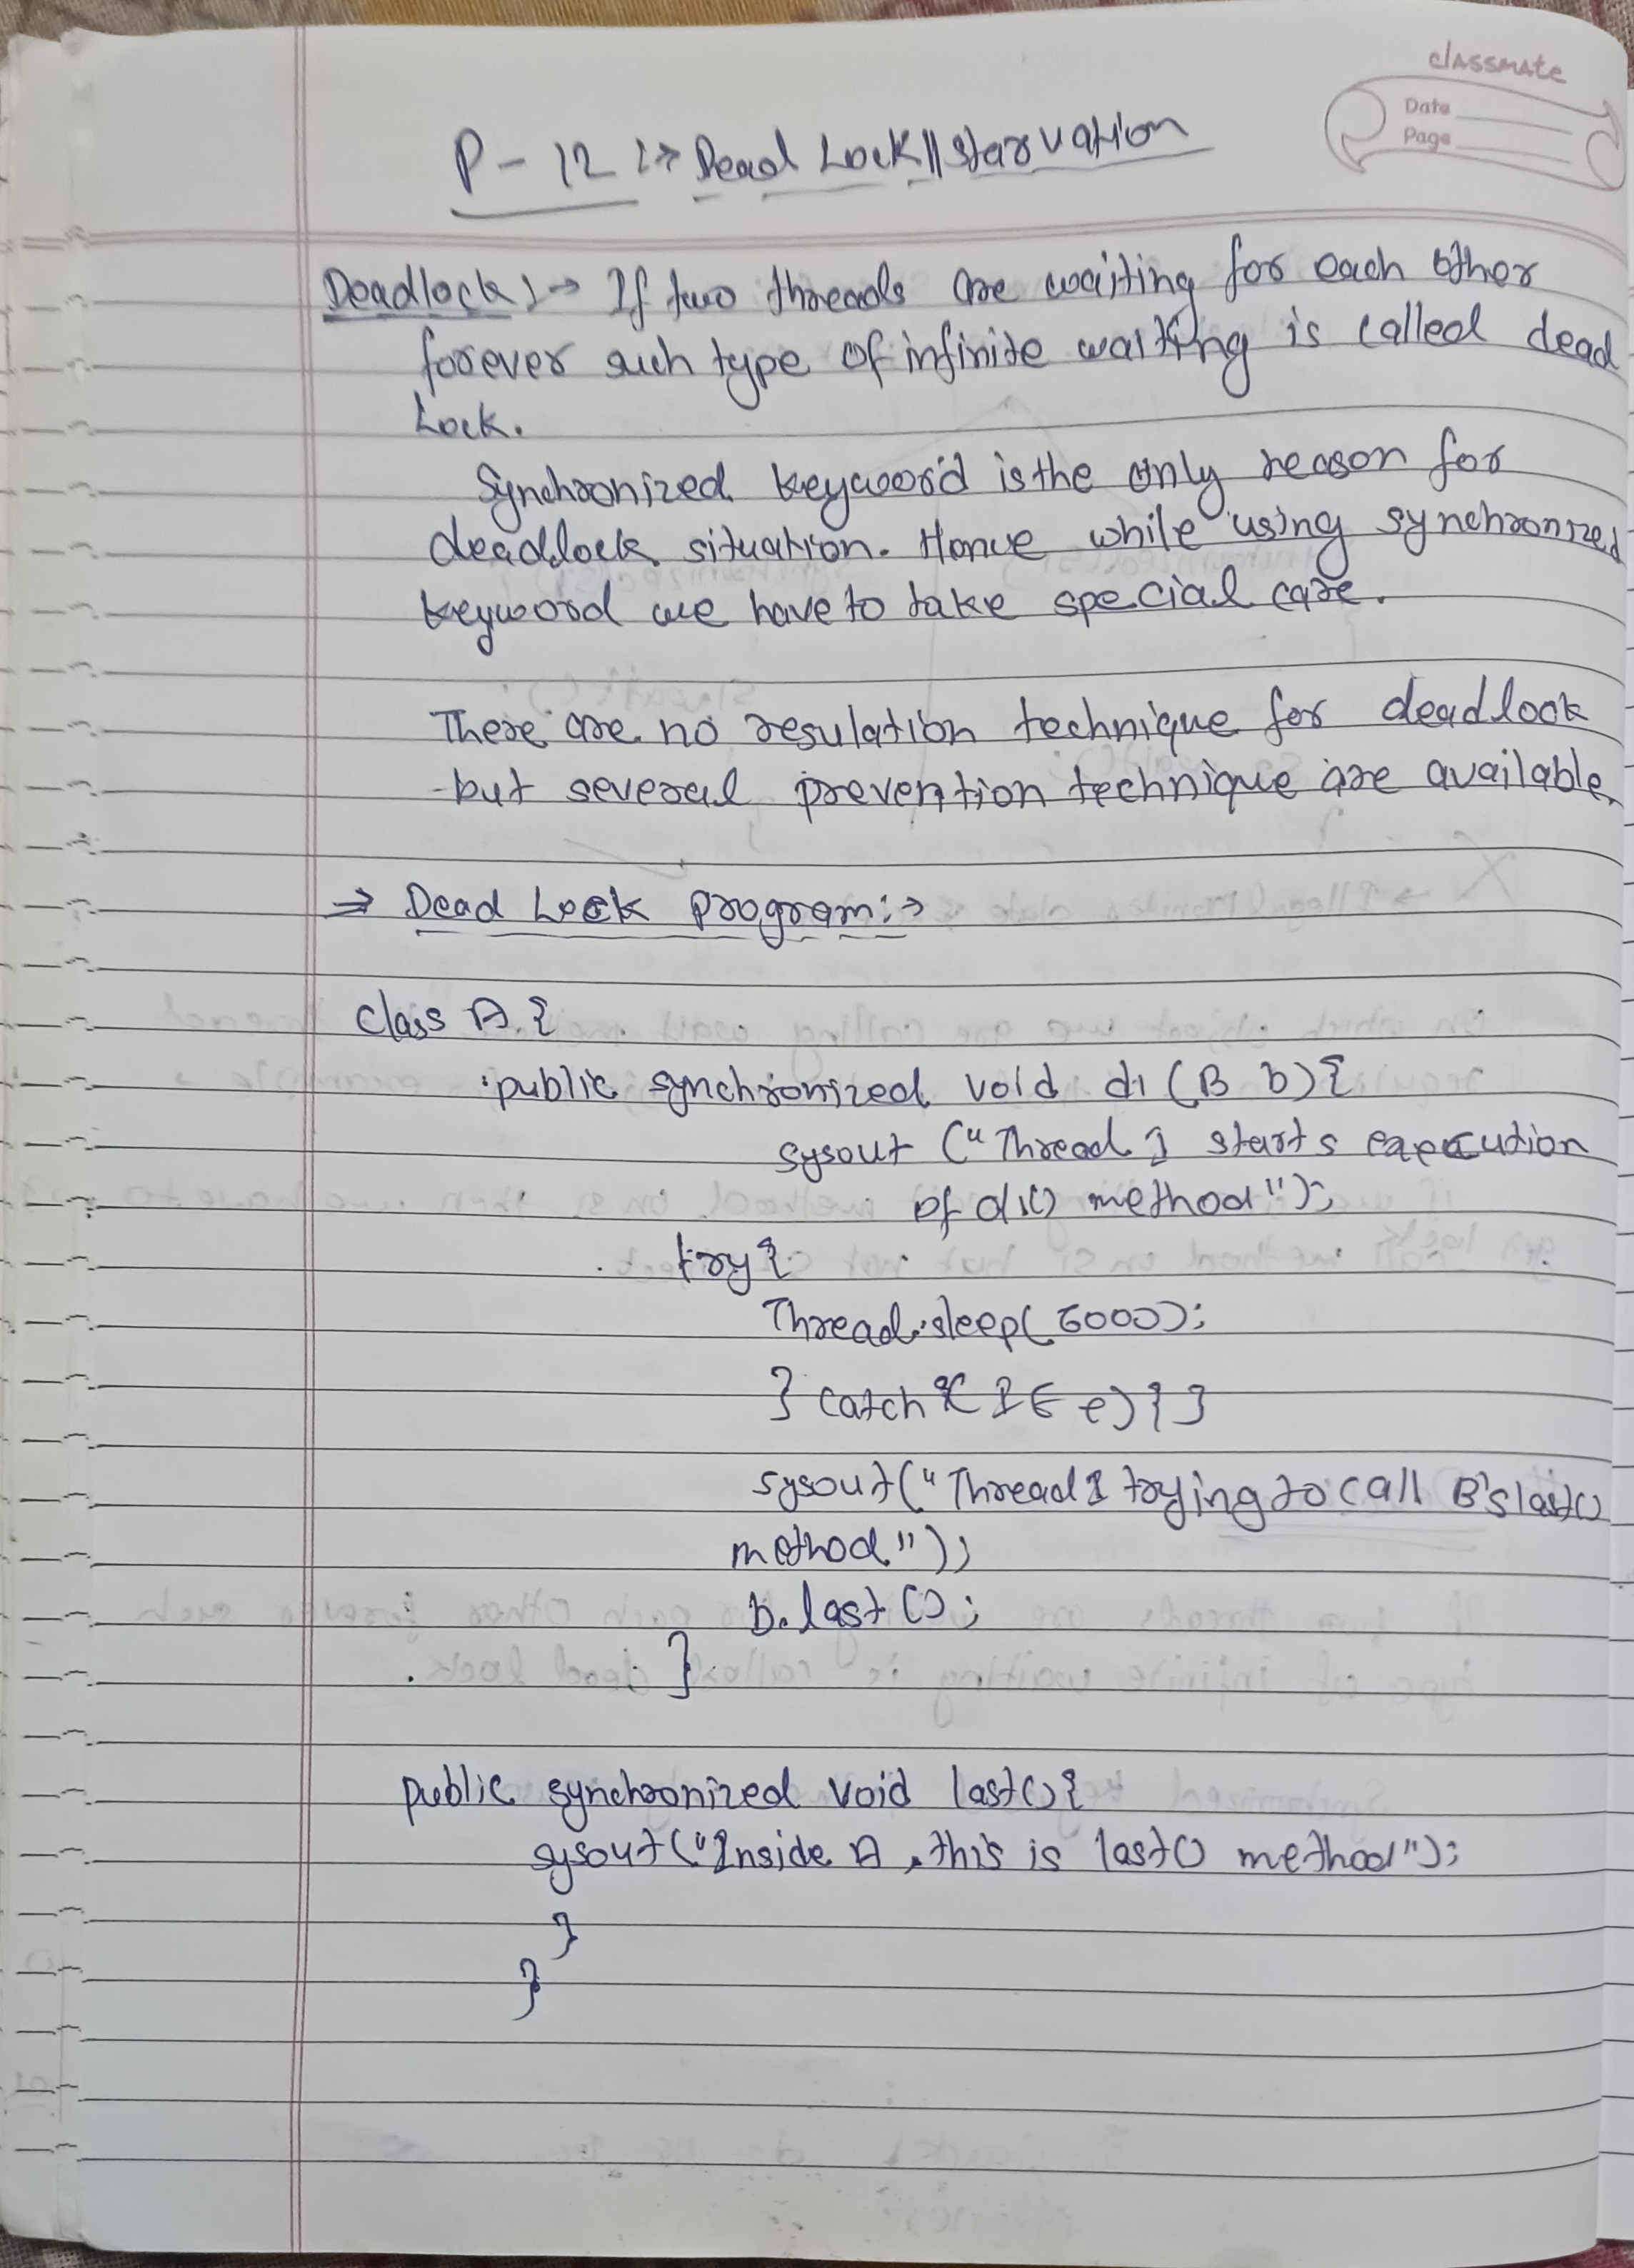 classmate
Date
Page
P-12 :→ Dead Lock || Starvation
Deadlock :→ If two threads are waiting for each other
forever such type of infinite waiting is called dead
Lock.
Synchronized keyword is the only reason for
deadlock situation. Hence while using synchronized
keyword we have to take special care.
There are no resulation technique for deadlock
but several prevention technique are available.
⇒ Dead Lock program :→
class A {
public synchronized void d1 (B b) {
sysout ("Thread 1 starts execution
of d1() method");
try {
Thread.sleep(6000);
} catch ( IE e) { }
sysout("Thread 1 trying to call B's last()
method");
b.last();
}
public synchronized void last() {
sysout("Inside A, this is last() method");
}
}